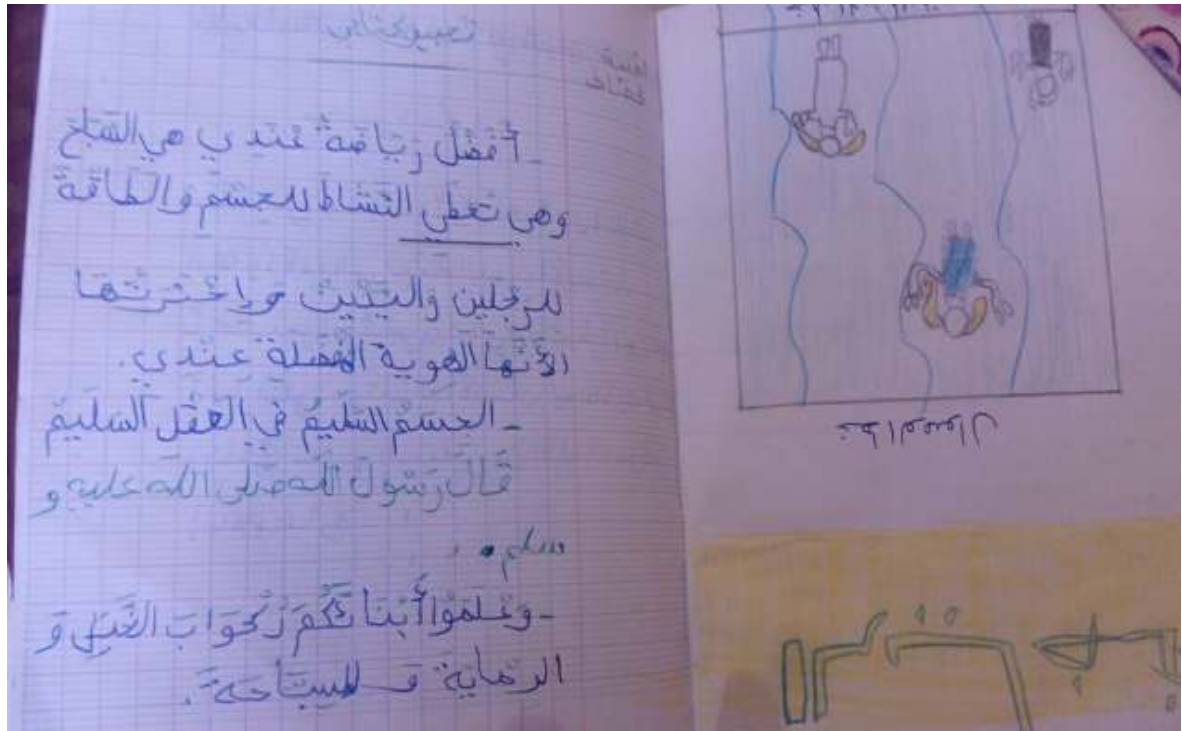 تعبير كتابي
أفضل رياضة عندي هي السباح
وهي تعطي النشاط للجسم والطاقة
للرجلين واليدين وإخترتها
الأنها الهوية المفضلة عندي.
- الجسم السليم في العقل السليم
قال رسول الله صلى الله عليه و
سلم.
- وعلموا أبنائكم ركواب الخيل و
الرماية و السباحة.
خط الوصول